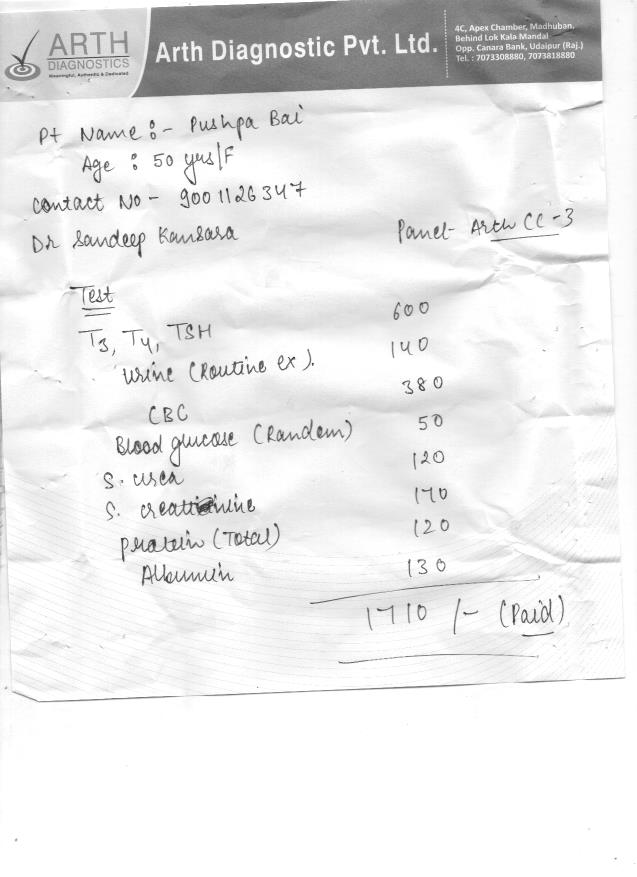 ARTH
DIAGNOSTICS
Meaningful, Authentic & Dedicated
Arth Diagnostic Pvt. Ltd.
4C, Apex Chamber, Madhuban,
Behind Lok Kala Mandal
Opp. Canara Bank, Udaipur (Raj.)
Tel. : 7073308880, 7073818880
Pt Name :- Pushpa Bai
Age : 50 yrs/F
Contact No - 9001126347
Dr Sandeep Kansara
Panel- Arth CC-3
Test
T3, T4, TSH 600
Urine (Routine ex). 140
CBC 380
Blood glucose (Random) 50
S. urea 120
S. creatinine 170
protein (Total) 120
Albumin 130
1710 /- (Paid)